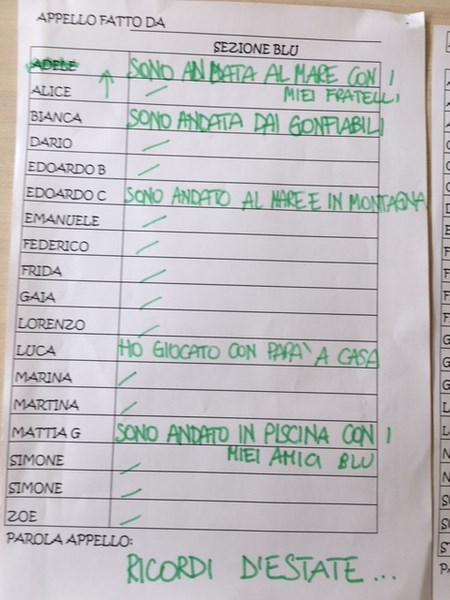 APPELLO FATTO DA
SEZIONE BLU
ADELE SONO ANDATA AL MARE CON I
ALICE / MIEI FRATELLI
BIANCA SONO ANDATA DAI GONFIABILI
DARIO /
EDOARDO B /
EDOARDO C SONO ANDATO AL MARE E IN MONTAGNA
EMANUELE /
FEDERICO /
FRIDA /
GAIA /
LORENZO /
LUCA HO GIOCATO CON PAPA' A CASA
MARINA /
MARTINA /
MATTIA G SONO ANDATO IN PISCINA CON I
SIMONE / MIEI AMICI BLU
SIMONE /
ZOE /
PAROLA APPELLO:
RICORDI D'ESTATE...